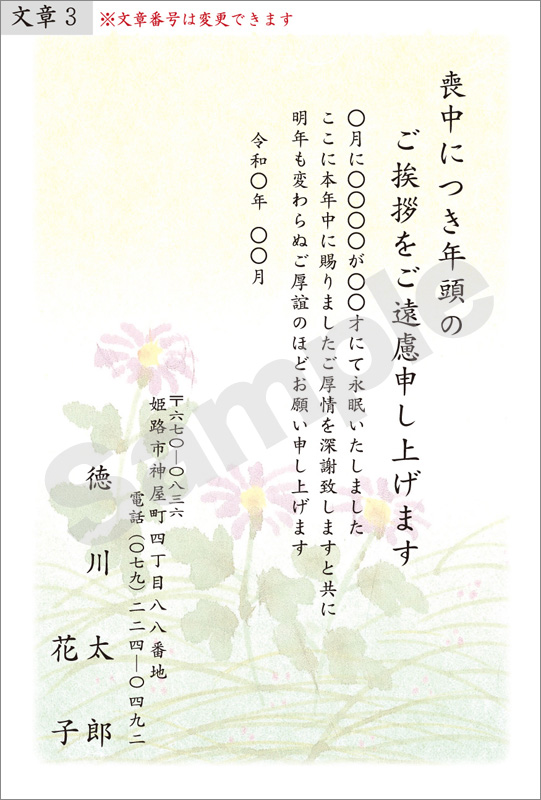 文章3
※文章番号は変更できます
喪中につき年頭の
ご挨拶をご遠慮申し上げます
〇月に〇〇〇〇が〇〇才にて永眠いたしました
ここに本年中に賜りましたご厚情を深謝致しますと共に
明年も変わらぬご厚誼のほどお願い申し上げます
令和〇年 〇〇月
〒六七〇―〇八三六
姫路市神屋町四丁目八八番地
電話(〇七九)二二四―〇四九二
徳川 太郎
花子
Sample